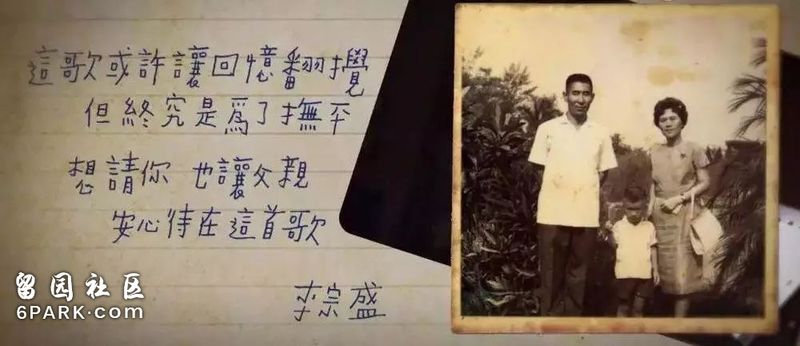 這歌或許讓回憶翻攪
但終究是為了撫平
想請你 也讓父親
安心待在這首歌
李宗盛
留园社区
6PARK.com